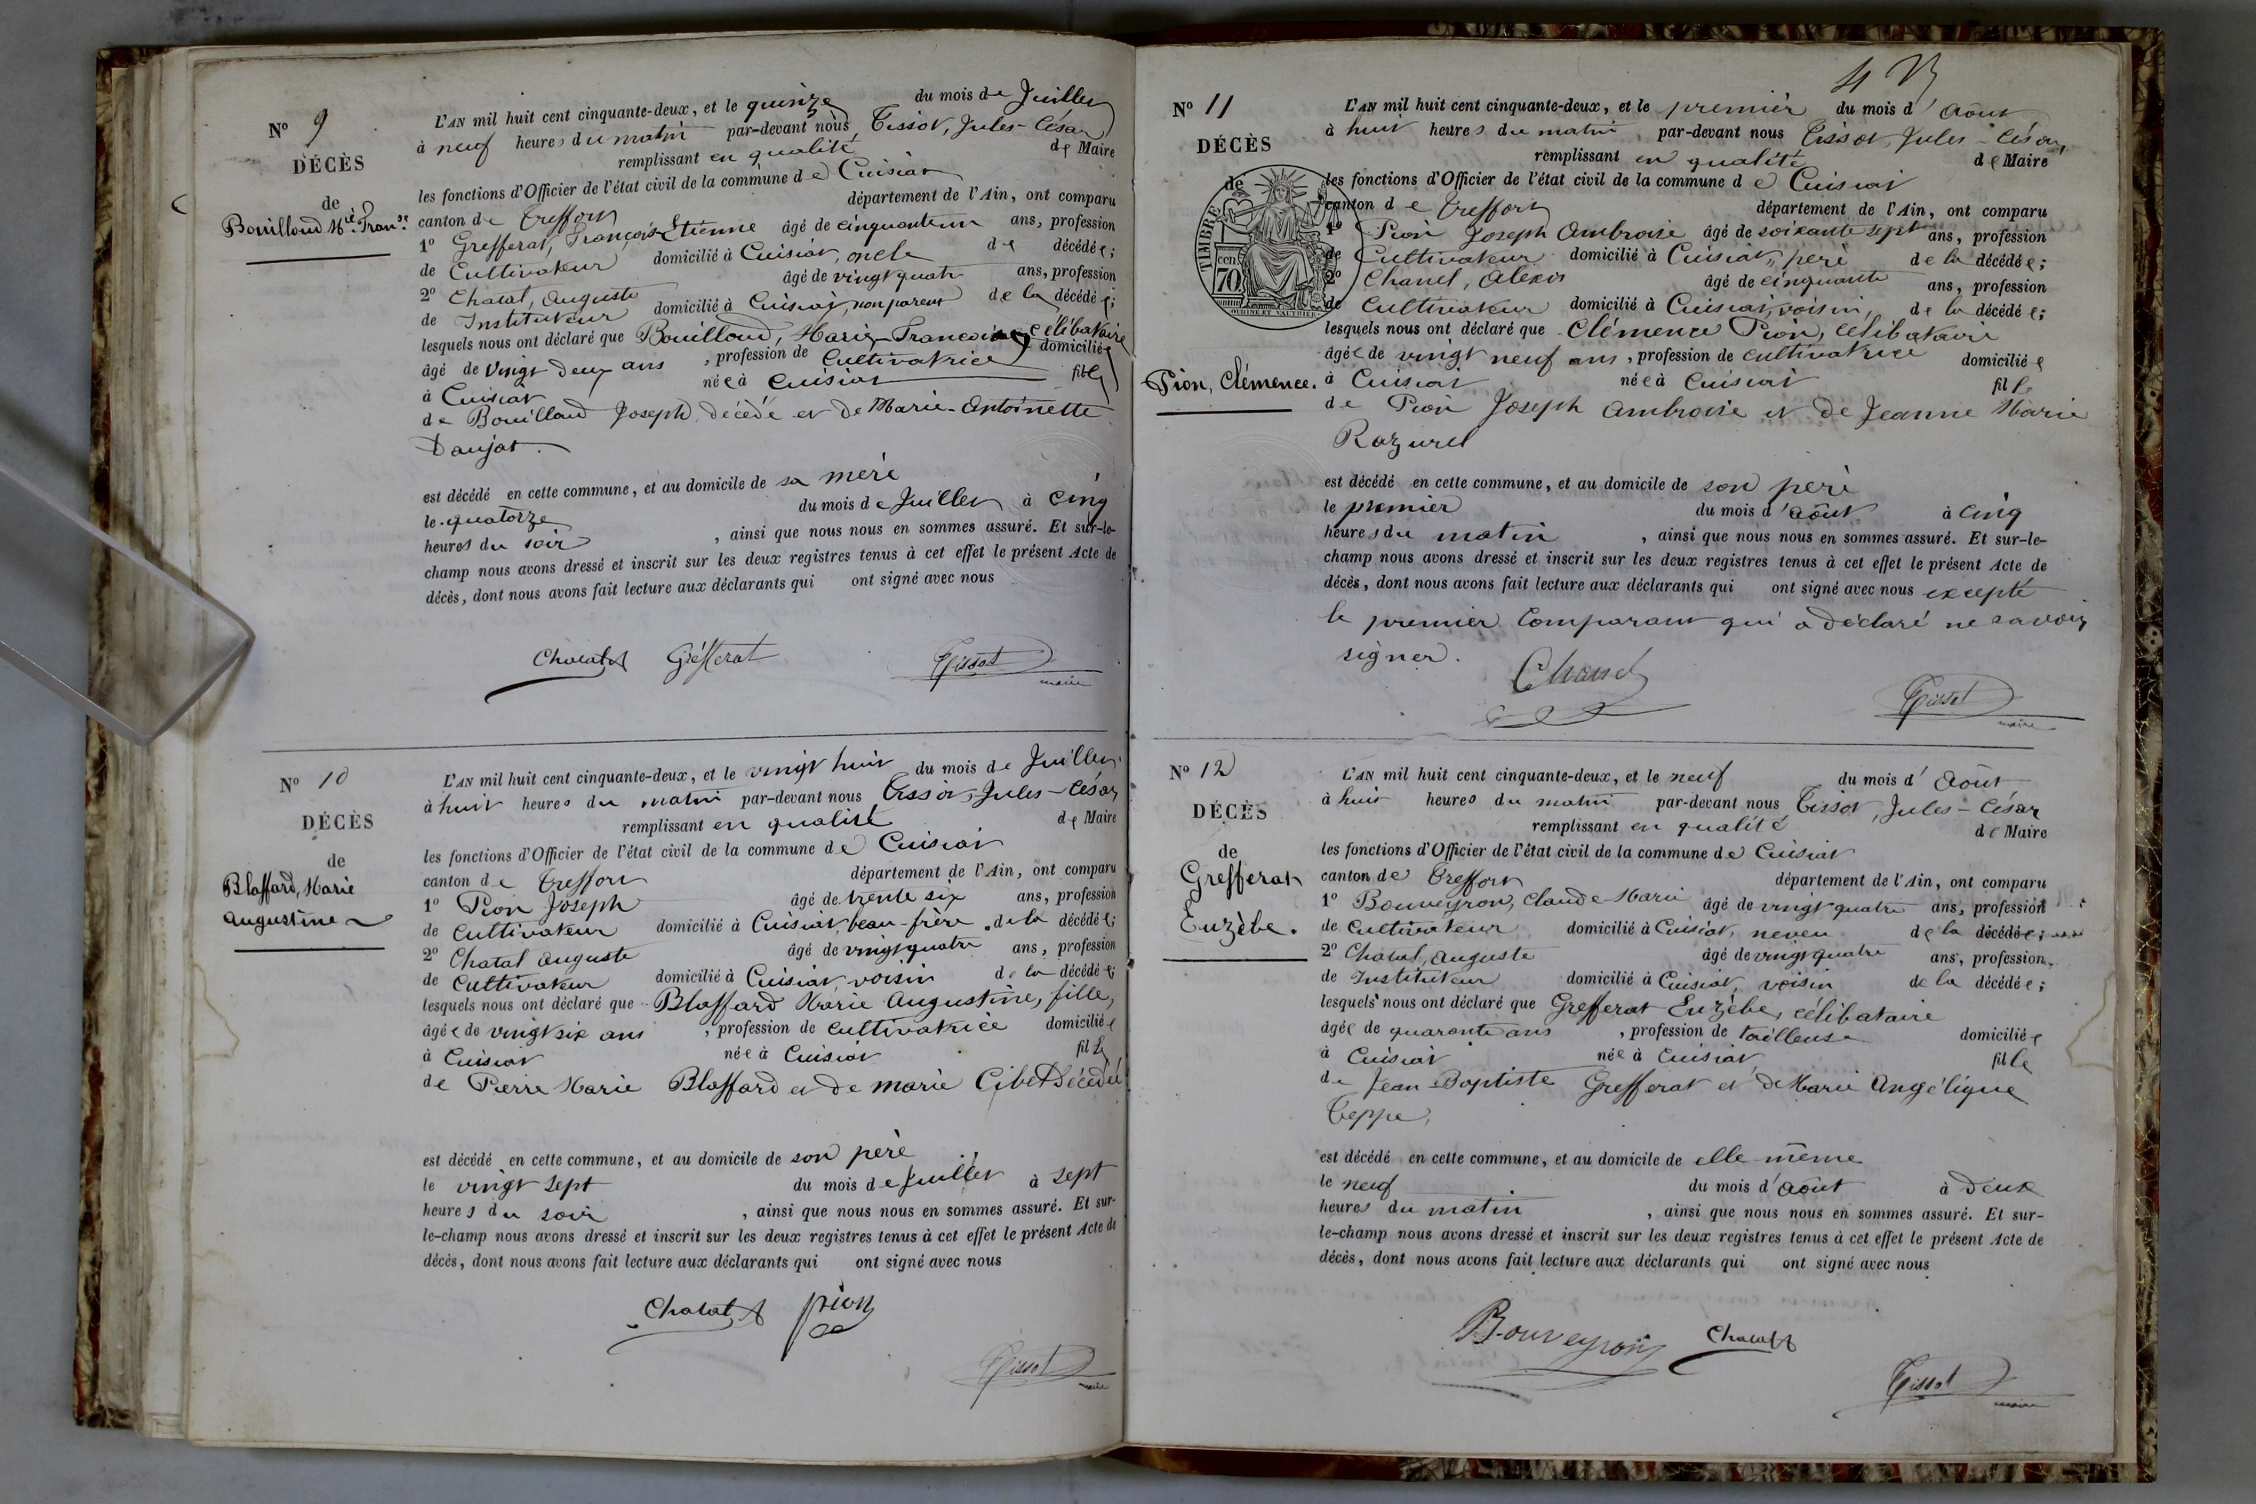 Nº 9
DÉCÈS
de
Bouilloud Mie. Franse.
L'AN mil huit cent cinquante-deux, et le quinze du mois de Juillet
à neuf heures du matin par-devant nous Tissot, Jules-César
remplissant en qualité de Maire
les fonctions d'Officier de l'état civil de la commune de Cuisiat
canton de Treffort département de l'Ain, ont comparu
1º Grefferat, François-Etienne âgé de cinquante un ans, profession
de Cultivateur domicilié à Cuisiat, oncle de décédée;
2º Chatat, Auguste âgé de vingt quatre ans, profession
de Instituteur domicilié à Cuisiat, non parent de la décédée;
lesquels nous ont déclaré que Bouilloud, Marie Françoise célibataire
âgé de vingt deux ans, profession de Cultivatrice domiciliée
à Cuisiat née à Cuisiat fille
de Bouilloud Joseph décédé et de Marie-Antoinette
Daujat.
est décédé en cette commune, et au domicile de sa mère
le quatorze du mois de Juillet à cinq
heures du soir, ainsi que nous nous en sommes assuré. Et sur-le-
champ nous avons dressé et inscrit sur les deux registres tenus à cet effet le présent Acte de
décès, dont nous avons fait lecture aux déclarants qui ont signé avec nous
Chatat A Grefferat Tissot
maire
Nº 10
DÉCÈS
de
Blaffard, Marie
Augustine
L'AN mil huit cent cinquante-deux, et le vingt huit du mois de Juillet
à huit heures du matin par-devant nous Tissot, Jules-César
remplissant en qualité de Maire
les fonctions d'Officier de l'état civil de la commune de Cuisiat
canton de Treffort département de l'Ain, ont comparu
1º Pion Joseph âgé de trente six ans, profession
de Cultivateur domicilié à Cuisiat, beau-frère de la décédée;
2º Chatat Auguste âgé de vingt quatre ans, profession
de Cultivateur domicilié à Cuisiat, voisin de la décédée;
lesquels nous ont déclaré que Blaffard Marie Augustine, fille,
âgée de vingt six ans, profession de Cultivatrice domiciliée
à Cuisiat née à Cuisiat fille
de Pierre Marie Blaffard et de Marie Cibet décédé
est décédé en cette commune, et au domicile de son père
le vingt sept du mois de Juillet à sept
heures du soir, ainsi que nous nous en sommes assuré. Et sur-
le-champ nous avons dressé et inscrit sur les deux registres tenus à cet effet le présent Acte de
décès, dont nous avons fait lecture aux déclarants qui ont signé avec nous
Chatat A pion
Tissot
maire
Nº 11
DÉCÈS
de
TIMBRE
70 cen
Pion, Clémence.
L'AN mil huit cent cinquante-deux, et le premier du mois d'Août
à huit heures du matin, par-devant nous Tissot, Jules-César,
remplissant en qualité de Maire
les fonctions d'Officier de l'état civil de la commune de Cuisiat
canton de Treffort département de l'Ain, ont comparu
1º Pion Joseph Ambroise âgé de soixante sept ans, profession
de Cultivateur domicilié à Cuisiat, père de la décédée;
2º Chanel, Alexis âgé de cinquante ans, profession
de Cultivateur domicilié à Cuisiat, voisin, de la décédée;
lesquels nous ont déclaré que Clémence Pion, célibataire
âgée de vingt neuf ans, profession de cultivatrice domiciliée
à Cuisiat née à Cuisiat fille
de Pion Joseph Ambroise et de Jeanne Marie
Razurel
est décédé en cette commune, et au domicile de son père
le premier du mois d'Août à cinq
heures du matin, ainsi que nous nous en sommes assuré. Et sur-le-
champ nous avons dressé et inscrit sur les deux registres tenus à cet effet le présent Acte de
décès, dont nous avons fait lecture aux déclarants qui ont signé avec nous excepté
le premier comparant qui a déclaré ne savoir
signer.
Chanel Tissot
maire
Nº 12
DÉCÈS
de
Grefferat
Euzèbe.
L'AN mil huit cent cinquante-deux, et le neuf du mois d'Août
à huit heures du matin par-devant nous Tissot, Jules-César
remplissant en qualité de Maire
les fonctions d'Officier de l'état civil de la commune de Cuisiat
canton de Treffort département de l'Ain, ont comparu
1º Bouveyron, Claude-Marie âgé de vingt quatre ans, profession
de Cultivateur domicilié à Cuisiat, neveu de la décédée;
2º Chatat, Auguste âgé de vingt quatre ans, profession
de Instituteur domicilié à Cuisiat, voisin de la décédée;
lesquels nous ont déclaré que Grefferat Euzèbe, célibataire
âgée de quarante ans, profession de tailleuse domiciliée
à Cuisiat née à Cuisiat, fille
de Jean-Baptiste Grefferat et de Marie Angélique
Teppe,
est décédé en cette commune, et au domicile de elle même
le neuf du mois d'Août à deux
heures du matin, ainsi que nous nous en sommes assuré. Et sur-
le-champ nous avons dressé et inscrit sur les deux registres tenus à cet effet le présent Acte de
décès, dont nous avons fait lecture aux déclarants qui ont signé avec nous
Bouveyron Chatat A
Tissot
maire